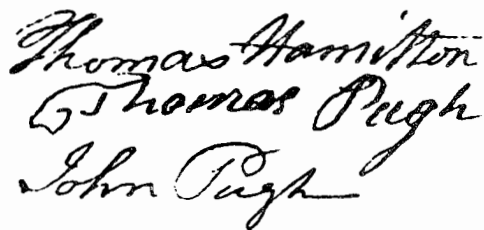 Thomas Hamilton
Thomas Pugh
John Pugh